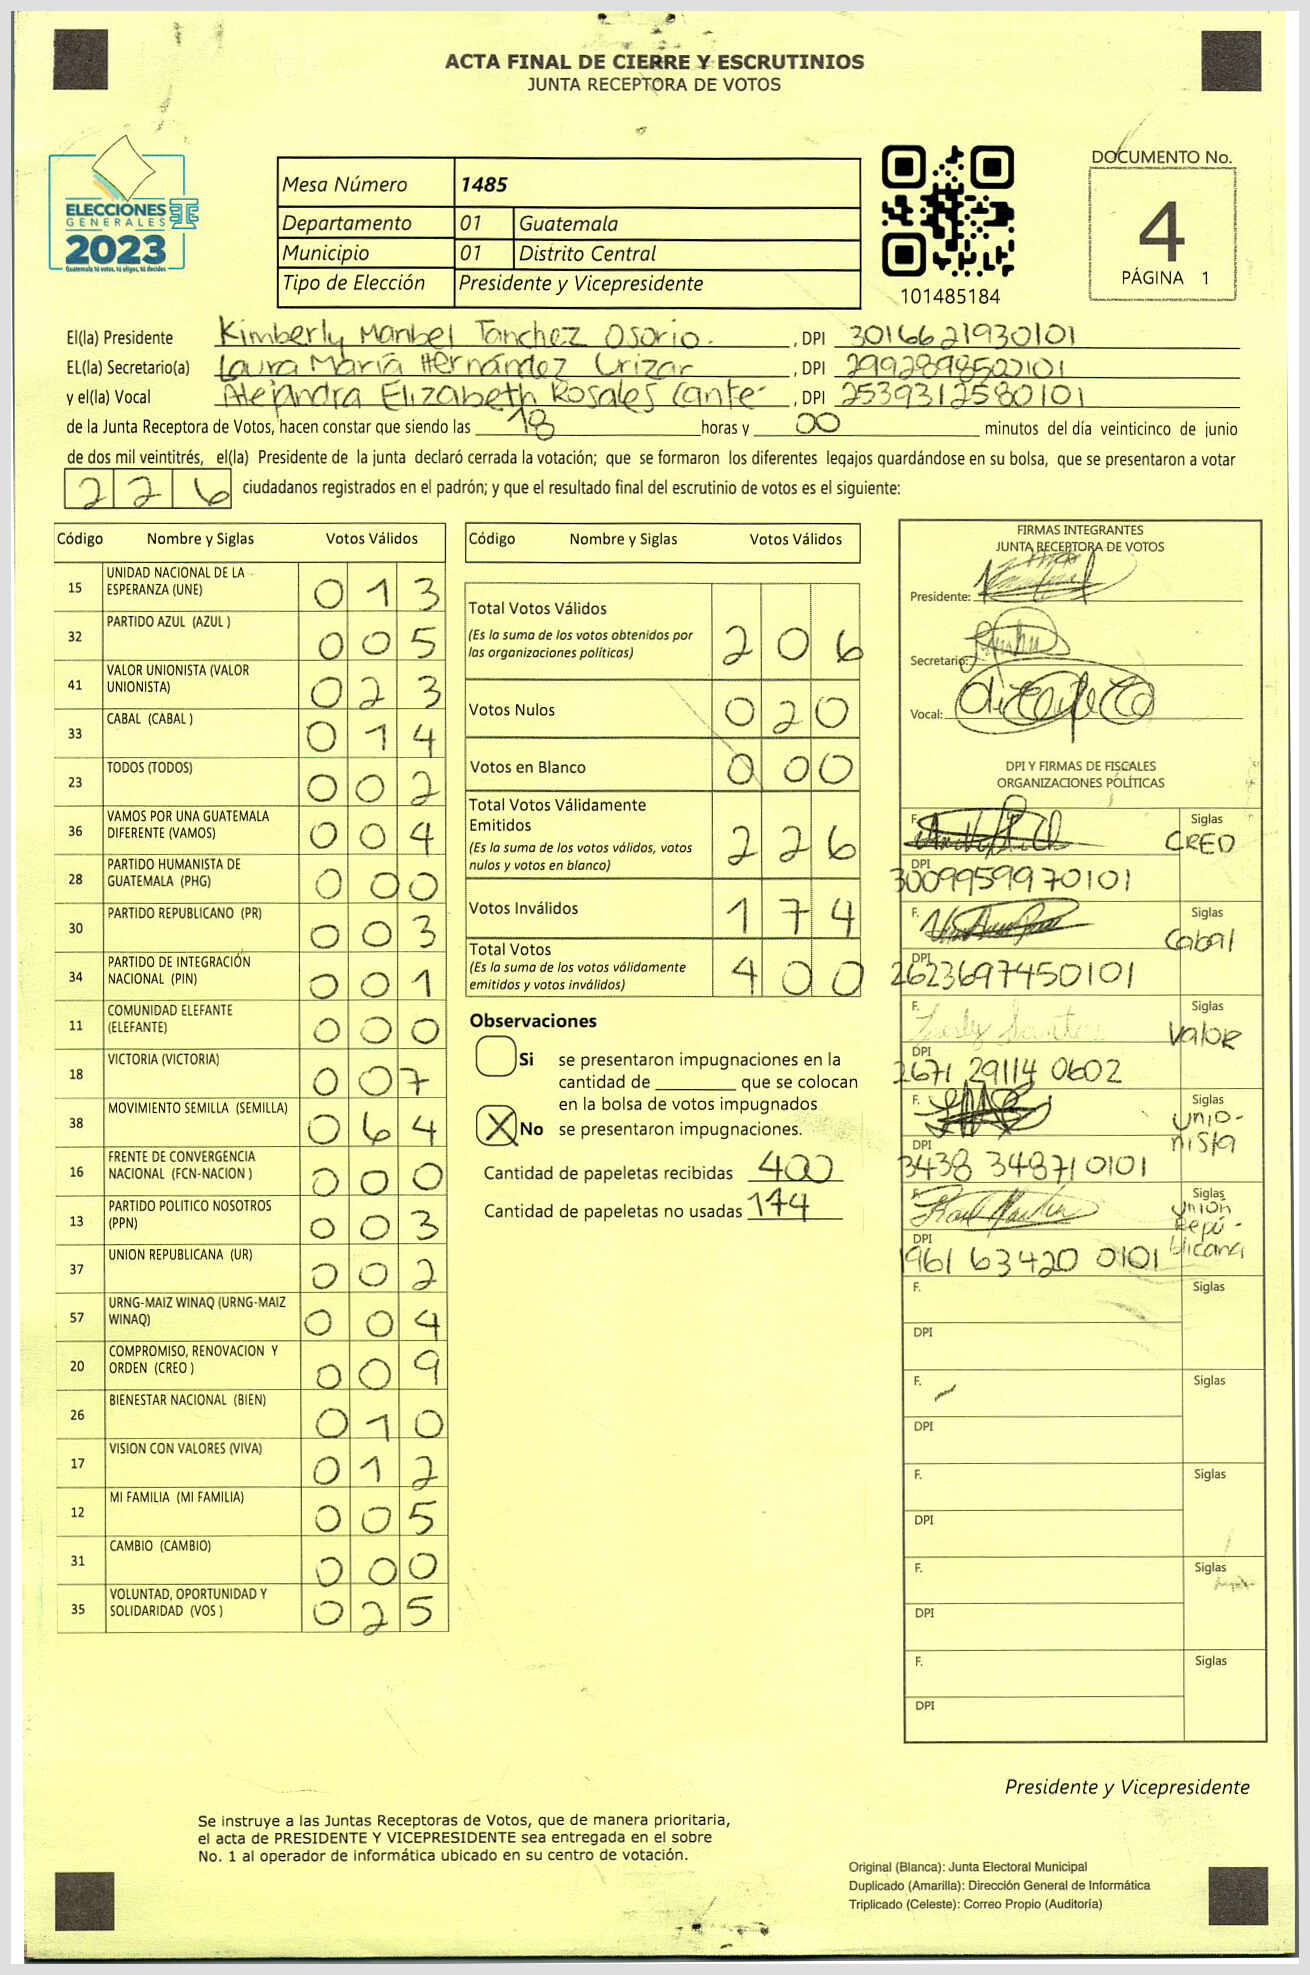 ACTA FINAL DE CIERRE Y ESCRUTINIOS
JUNTA RECEPTORA DE VOTOS
ELECCIONES
GENERALES
2023
Guatemala tú votas, tú eliges, tú decides
Mesa Número 1485
Departamento 01 Guatemala
Municipio 01 Distrito Central
Tipo de Elección Presidente y Vicepresidente
101485184
DOCUMENTO No.
4
PÁGINA 1
El(la) Presidente Kimberly Maribel Tanchez Osorio. , DPI 3016621930101
EL(la) Secretario(a) Laura María Hernández Urizar , DPI 2992898500101
y el(la) Vocal Alejandra Elizabeth Rosales Cante- , DPI 2539312580101
de la Junta Receptora de Votos, hacen constar que siendo las 18 horas y 00 minutos del día veinticinco de junio
de dos mil veintitrés, el(la) Presidente de la junta declaró cerrada la votación; que se formaron los diferentes legajos guardándose en su bolsa, que se presentaron a votar
226 ciudadanos registrados en el padrón; y que el resultado final del escrutinio de votos es el siguiente:
Código Nombre y Siglas Votos Válidos
15 UNIDAD NACIONAL DE LA
ESPERANZA (UNE) 013
32 PARTIDO AZUL (AZUL ) 005
41 VALOR UNIONISTA (VALOR
UNIONISTA) 023
33 CABAL (CABAL ) 014
23 TODOS (TODOS) 002
36 VAMOS POR UNA GUATEMALA
DIFERENTE (VAMOS) 004
28 PARTIDO HUMANISTA DE
GUATEMALA (PHG) 000
30 PARTIDO REPUBLICANO (PR) 003
34 PARTIDO DE INTEGRACIÓN
NACIONAL (PIN) 001
11 COMUNIDAD ELEFANTE
(ELEFANTE) 000
18 VICTORIA (VICTORIA) 007
38 MOVIMIENTO SEMILLA (SEMILLA) 064
16 FRENTE DE CONVERGENCIA
NACIONAL (FCN-NACION ) 000
13 PARTIDO POLITICO NOSOTROS
(PPN) 003
37 UNION REPUBLICANA (UR) 002
57 URNG-MAIZ WINAQ (URNG-MAIZ
WINAQ) 004
20 COMPROMISO, RENOVACION Y
ORDEN (CREO ) 009
26 BIENESTAR NACIONAL (BIEN) 010
17 VISION CON VALORES (VIVA) 012
12 MI FAMILIA (MI FAMILIA) 005
31 CAMBIO (CAMBIO) 000
35 VOLUNTAD, OPORTUNIDAD Y
SOLIDARIDAD (VOS ) 025
Código Nombre y Siglas Votos Válidos
Total Votos Válidos 206
(Es la suma de los votos obtenidos por
las organizaciones políticas)
Votos Nulos 020
Votos en Blanco 000
Total Votos Válidamente
Emitidos 226
(Es la suma de los votos válidos, votos
nulos y votos en blanco)
Votos Inválidos 174
Total Votos 400
(Es la suma de los votos válidamente
emitidos y votos inválidos)
Observaciones
Si se presentaron impugnaciones en la
cantidad de ________ que se colocan
en la bolsa de votos impugnados
X No se presentaron impugnaciones.
Cantidad de papeletas recibidas 400
Cantidad de papeletas no usadas 174
FIRMAS INTEGRANTES
JUNTA RECEPTORA DE VOTOS
Presidente:
Secretario:
Vocal:
DPI Y FIRMAS DE FISCALES
ORGANIZACIONES POLÍTICAS
F. Siglas
CREO
DPI
3009959970101
F. Siglas
Cabal
DPI
2623697450101
F. Siglas
Valor
DPI
2671 29114 0602
F. Siglas
Unio-
nista
DPI
3438 34871 0101
F. Siglas
Unión
Repú-
blicana
DPI
1961 63420 0101
F. Siglas
DPI
F. Siglas
DPI
F. Siglas
DPI
F. Siglas
DPI
F. Siglas
DPI
Presidente y Vicepresidente
Se instruye a las Juntas Receptoras de Votos, que de manera prioritaria,
el acta de PRESIDENTE Y VICEPRESIDENTE sea entregada en el sobre
No. 1 al operador de informática ubicado en su centro de votación.
Original (Blanca): Junta Electoral Municipal
Duplicado (Amarilla): Dirección General de Informática
Triplicado (Celeste): Correo Propio (Auditoría)